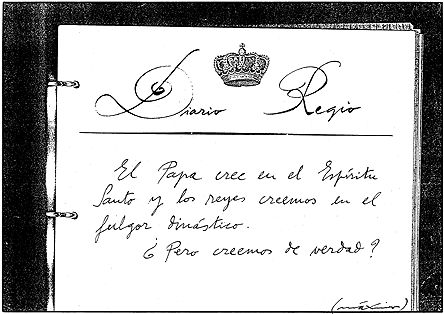 Diario Regio
El Papa cree en el Espíritu
Santo y los reyes creemos en el
fulgor dinástico.
¿Pero creemos de verdad?
(máximo)